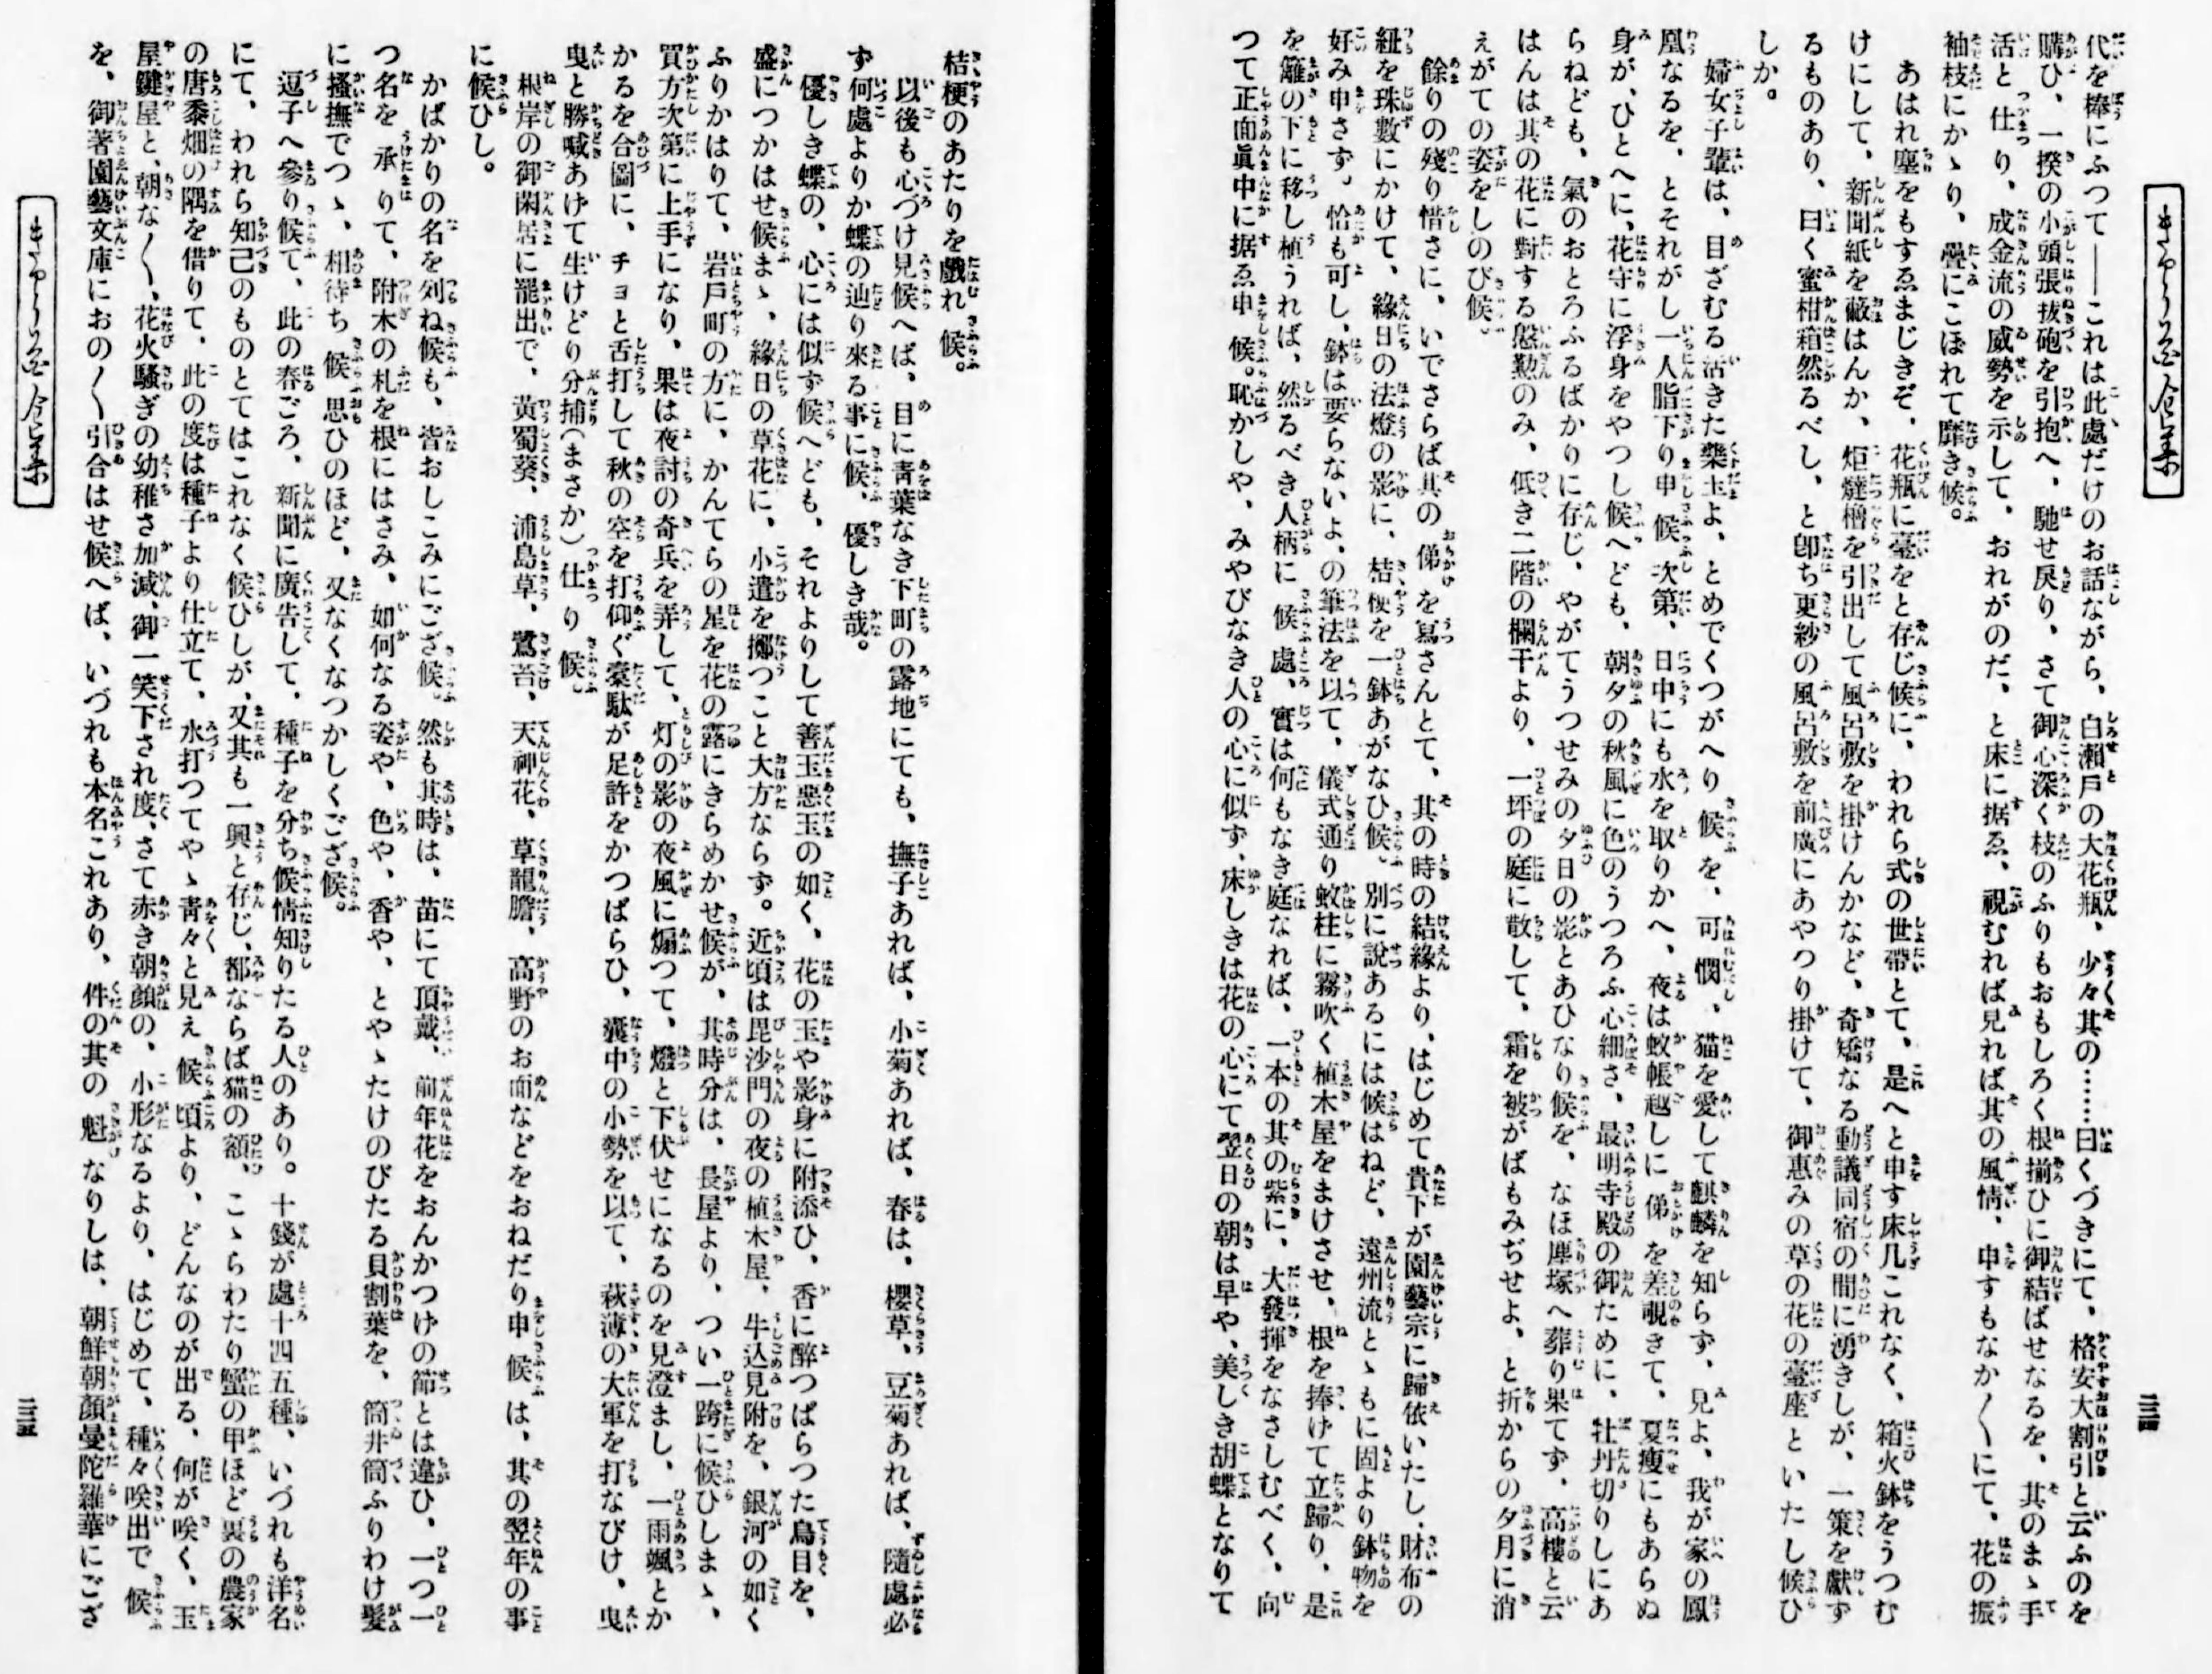 代を棒にふつて――これは此處だけのお話ながら、白瀬戸の大花瓶、少々其の……曰くづきにて、格安大割引と云ふのを
購ひ、一揆の小頭張拔砲を引抱へ、馳せ戻り、さて御心深く枝のふりもおもしろく根揃ひに御結ばせなるを、其のまゝ手
活と仕り、成金流の威勢を示して、おれがのだ、と床に据ゑ、視むれば見れば其の風情、申すもなか〱にて、花の振
袖枝にかゝり、疊にこぼれて靡き候。
あはれ塵をもすゑまじきぞ、花瓶に臺をと存じ候に、われら式の世帶とて、是へと申す床几これなく、箱火鉢をうつむ
けにして、新聞紙を蔽はんか、炬燵櫓を引出して風呂敷を掛けんかなど、奇矯なる動議同宿の間に湧きしが、一策を獻ず
るものあり、曰く蜜柑箱然るべし、と卽ち更紗の風呂敷を前廣にあやつり掛けて、御惠みの草の花の臺座といたし候ひ
しか。
婦女子輩は、目ざむる活きた藥玉よ、とめでくつがへり候を、可憫、猫を愛して麒麟を知らず、見よ、我が家の鳳
凰なるを、とそれがし一人脂下り申候次第、日中にも水を取りかへ、夜は蚊帳越しに俤を差覗きて、夏瘦にもあらぬ
身が、ひとへに、花守に浮身をやつし候へども、朝夕の秋風に色のうつろふ心細さ、最明寺殿の御ために、牡丹切りしにあ
らねども、氣のおとろふるばかりに存じ、やがてうつせみの夕日の影とあひなり候を、なほ塵塚へ葬り果てず、高樓と云
はんは其の花に對する慇懃のみ、低き二階の欄干より、一坪の庭に散して、霜を被がばもみぢせよ、と折からの夕月に消
えがての姿をしのび候。
餘りの殘り惜さに、いでさらば其の俤を寫さんとて、其の時の結緣より、はじめて貴下が園藝宗に歸依いたし、財布の
紐を珠數にかけて、緣日の法燈の影に、桔梗を一鉢あがなひ候。別に說あるには候はねど、遠州流とゝもに固より鉢物を
好み申さず。恰も可し、鉢は要らないよ、の筆法を以て、儀式通り蚊柱に霧吹く植木屋をまけさせ、根を捧げて立歸り、是
を籬の下に移し植うれば、然るべき人柄に候處、實は何もなき庭なれば、一本の其の紫に、大發揮をなさしむべく、向
つて正面眞中に据ゑ申候。恥かしや、みやびなき人の心に似ず、床しきは花の心にて翌日の朝は早や、美しき胡蝶となりて
桔梗のあたりを戲れ候。
以後も心づけ見候へば、目に靑葉なき下町の露地にても、撫子あれば、小菊あれば、春は、櫻草、豆菊あれば、隨處必
ず何處よりか蝶の辿り來る事に候、優しき哉。
優しき蝶の、心には似ず候へども、それよりして善玉惡玉の如く、花の玉や影身に附添ひ、香に醉つぱらつた鳥目を、
盛につかはせ候まゝ、緣日の草花に、小遣を擲つこと大方ならず。近頃は毘沙門の夜の植木屋、牛込見附を、銀河の如く
ふりかはりて、岩戶町の方に、かんてらの星を花の露にきらめかせ候が、其時分は、長屋より、つい一跨に候ひしまゝ、
買方次第に上手になり、果は夜討の奇兵を弄して、灯の影の夜風に煽つて、燈と下伏せになるのを見澄まし、一雨颯とか
かるを合圖に、チョと舌打して秋の空を打仰ぐ槖駄が足許をかつぱらひ、囊中の小勢を以て、萩薄の大軍を打なびけ、曳
曳と勝喊あけて生けどり分捕（まさか）仕り候。
根岸の御閑居に罷出で、黃蜀葵、浦島草、鷺苔、天神花、草龍膽、高野のお面などをおねだり申候は、其の翌年の事
に候ひし。
かばかりの名を列ね候も、皆おしこみにござ候。然も其時は、苗にて頂戴、前年花をおんかつけの節とは違ひ、一つ一
つ名を承りて、附木の札を根にはさみ、如何なる姿や、色や、香や、とやゝたけのびたる貝割葉を、筒井筒ふりわけ髮
に搔撫でつゝ、相待ち候思ひのほど、又なくなつかしくござ候。
逗子へ參り候て、此の春ごろ、新聞に廣告して、種子を分ち候情知りたる人のあり。十錢が處十四五種、いづれも洋名
にて、われら知己のものとてはこれなく候ひしが、又其も一興と存じ、都ならば猫の額、こゝらわたり蟹の甲ほど裏の農家
の唐黍畑の隅を借りて、此の度は種子より仕立て、水打つてやゝ靑々と見え候頃より、どんなのが出る、何が咲く、玉
屋鍵屋と、朝な〱、花火騷ぎの幼稚さ加減、御一笑下され度、さて赤き朝顏の、小形なるより、はじめて、種々咲出で候
を、御著園藝文庫におの〱引合はせ候へば、いづれも本名これあり、件の其の魁なりしは、朝鮮朝顏曼陀羅華にござ